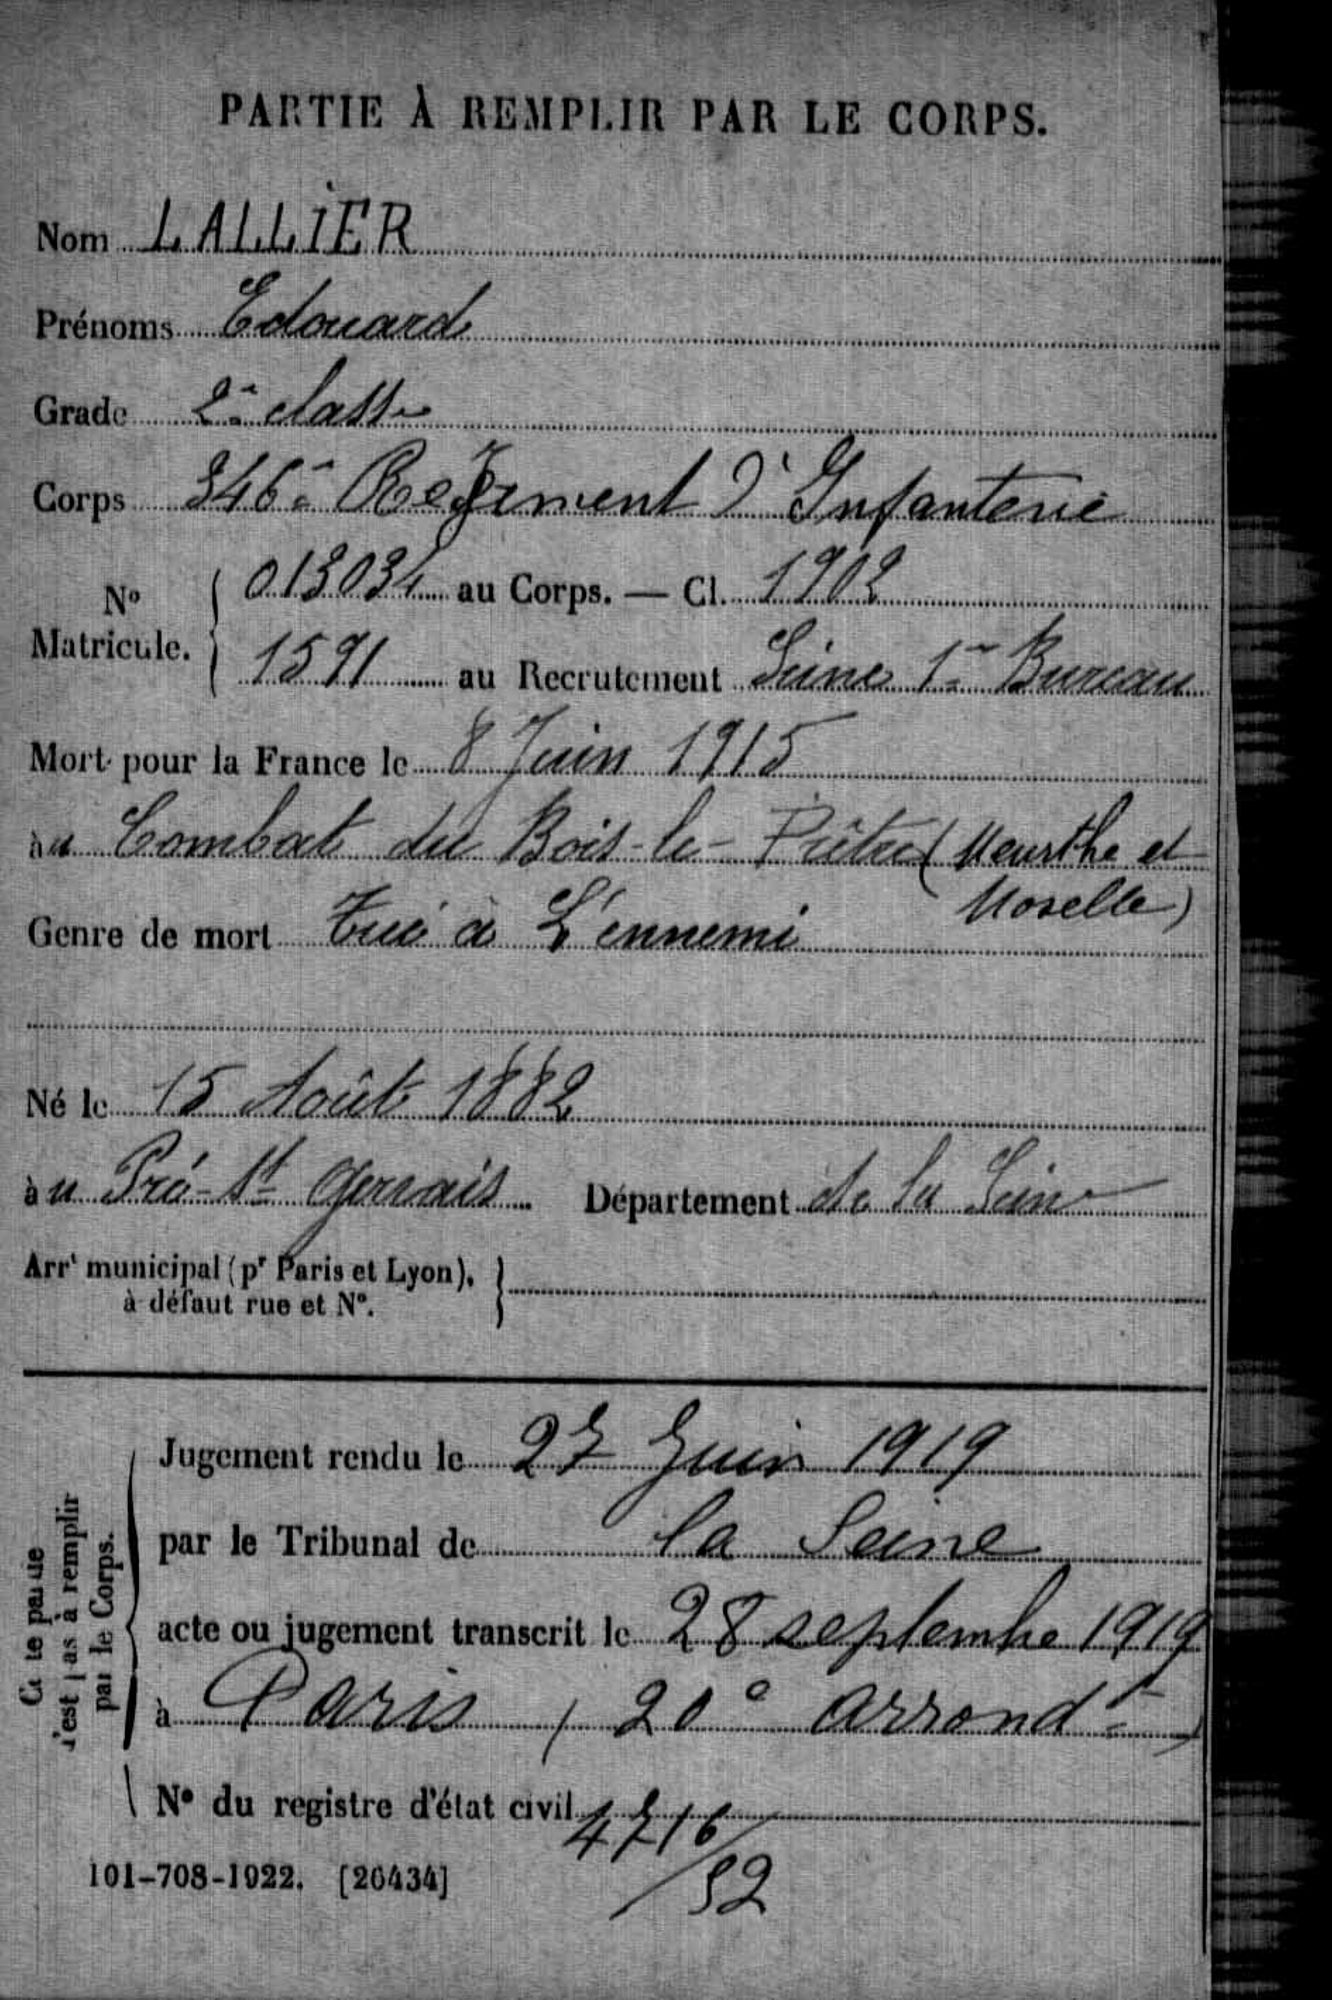 PARTIE À REMPLIR PAR LE CORPS.
Nom LALLIER
Prénoms Edouard
Grade 2e classe
Corps 346e Régiment d'Infanterie
No Matricule. 013034 au Corps. — Cl. 1902
1591 au Recrutement Seine 1er Bureau
Mort pour la France le 8 Juin 1915
au Combat du Bois-le-Prêtre (Meurthe et
Moselle)
Genre de mort Tué à L'ennemi
Né le 15 Août 1882
au Pré-St Gervais Département de la Seine
Arrt municipal (pr Paris et Lyon),
à défaut rue et No.
Cette partie
n'est pas à remplir
par le Corps.
Jugement rendu le 27 Juin 1919
par le Tribunal de la Seine
acte ou jugement transcrit le 28 septembre 1919
à Paris (20e arrondt)
No du registre d'état civil 4716/52
101-708-1922. [26434]